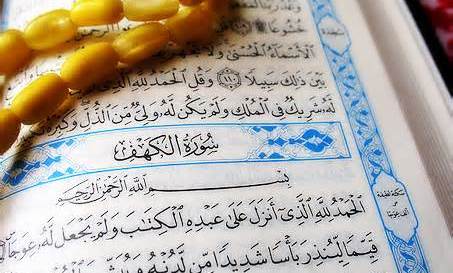 خُشُوعًا
الْأَسْمَاءُ الْحُسْنَىٰ وَلَا
بَيْنَ ذَٰلِكَ سَبِيلًا ﴿١١٠﴾ وَقُلِ الْحَمْدُ لِلَّهِ الَّذِي
لَّهُ شَرِيكٌ فِي الْمُلْكِ وَلَمْ يَكُن لَّهُ وَلِيٌّ مِّنَ الذُّلِّ وَكَبِّرْهُ
سُورَةُ الْكَهْفِ
بِسْمِ اللَّهِ الرَّحْمَٰنِ الرَّحِيمِ
الْحَمْدُ لِلَّهِ الَّذِي أَنزَلَ عَلَىٰ عَبْدِهِ الْكِتَابَ وَلَمْ يَجْعَل لَّهُ عِوَجًا
قَيِّمًا لِّيُنذِرَ بَأْسًا شَدِيدًا مِّن لَّدُنْهُ وَيُبَشِّرَ